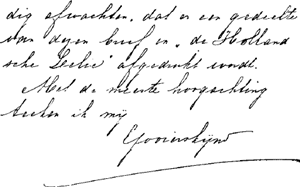 dig afwachten, dat er een gedeelte
van dezen brief in „de Holland
sche Lelie" afgedrukt wordt.
Met de meeste hoogachting
teeken ik mij